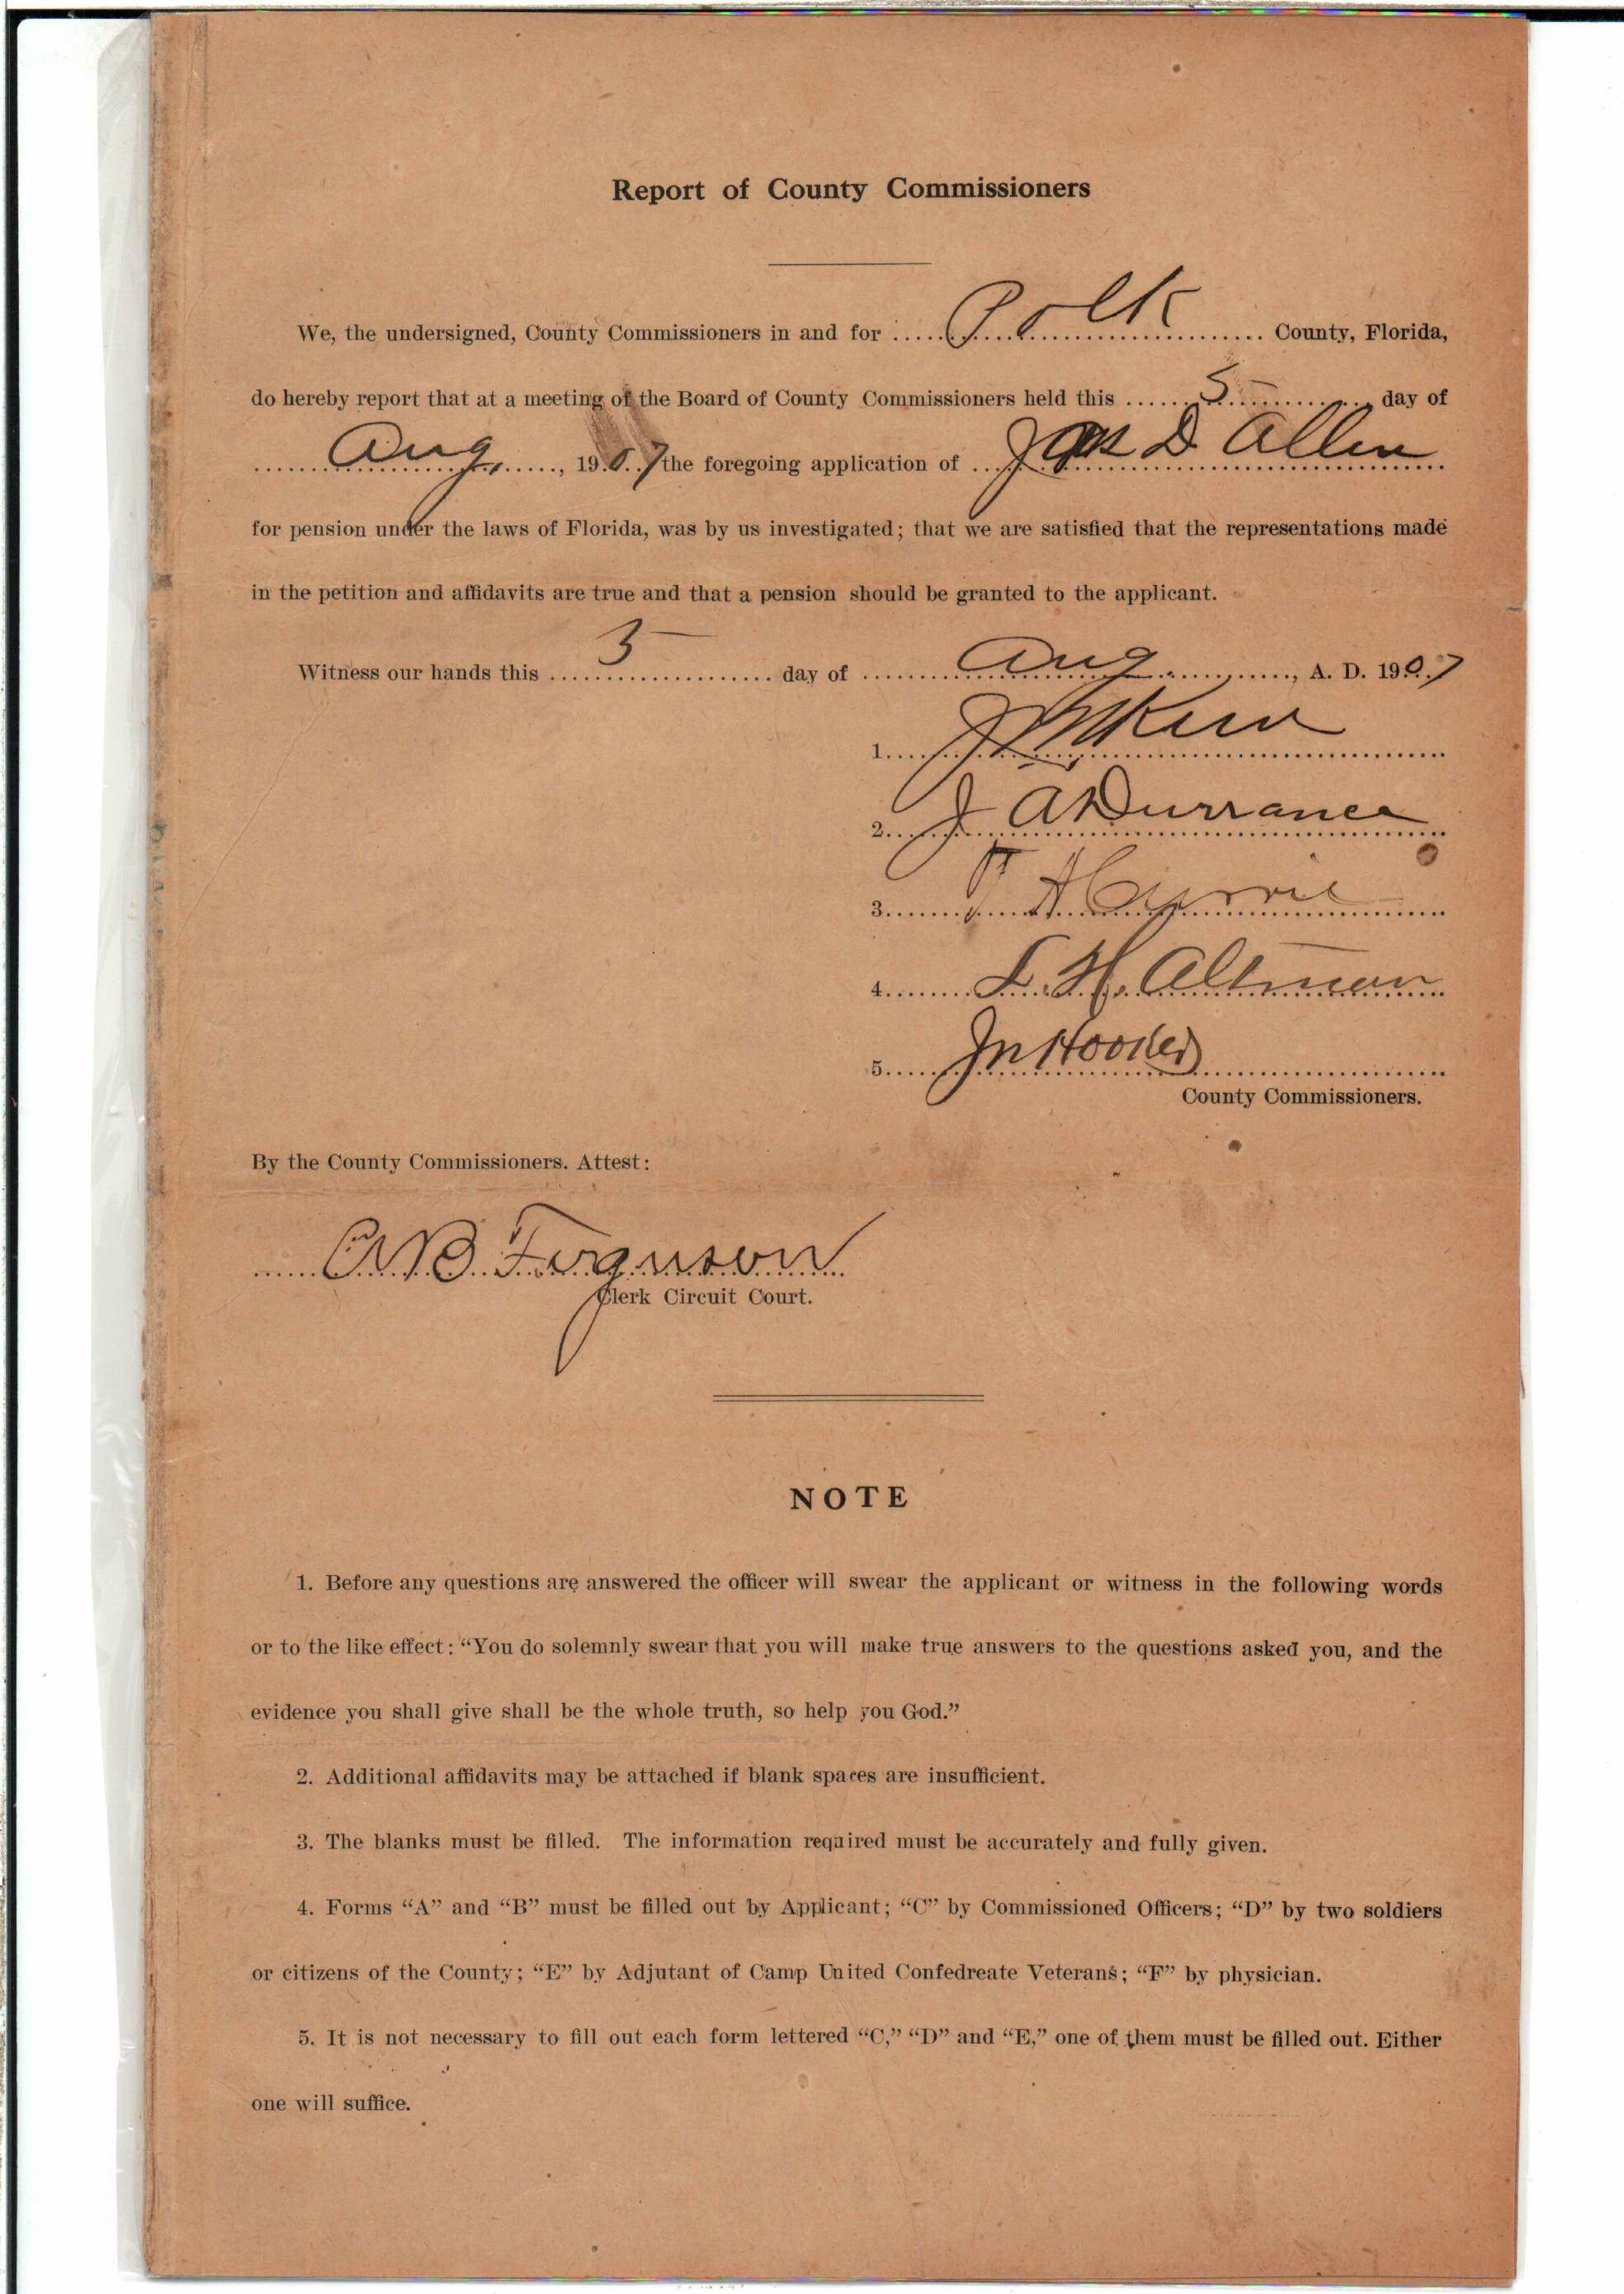 Report of County Commissioners
We, the undersigned, County Commissioners in and for Polk County, Florida,
do hereby report that at a meeting of the Board of County Commissioners held this 5 day of
Aug, 1907 the foregoing application of Jas D Allen
for pension under the laws of Florida, was by us investigated; that we are satisfied that the representations made
in the petition and affidavits are true and that a pension should be granted to the applicant.
Witness our hands this 5 day of Aug, A. D. 1907
1.
2. J A Durrance
3.
4. L. H. Altman
5. Jn Hooker
County Commissioners.
By the County Commissioners. Attest:
Ferguson
Clerk Circuit Court.
NOTE
1. Before any questions are answered the officer will swear the applicant or witness in the following words
or to the like effect: “You do solemnly swear that you will make true answers to the questions asked you, and the
evidence you shall give shall be the whole truth, so help you God.”
2. Additional affidavits may be attached if blank spaces are insufficient.
3. The blanks must be filled. The information required must be accurately and fully given.
4. Forms “A” and “B” must be filled out by Applicant; “C” by Commissioned Officers; “D” by two soldiers
or citizens of the County; “E” by Adjutant of Camp United Confedreate Veterans; “F” by physician.
5. It is not necessary to fill out each form lettered “C,” “D” and “E,” one of them must be filled out. Either
one will suffice.